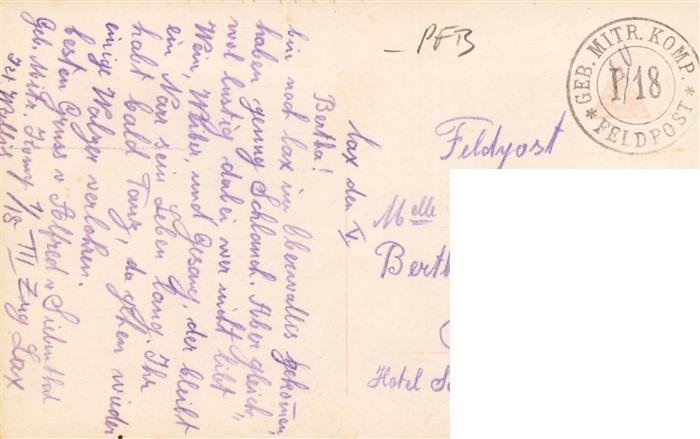 Lax den V.
Bertha!
bin noch Lax im Oberwallis gekommen,
haben genug Schlauch. Aber gleich-
wol lustig dabei wer nicht libt
Wein, Weiber, und Gesang, der bleibt
ein Narr sein Leben lang. Ihr
habt bald Tanz, da gehen wieder
einige Walzer verlohren.
besten Gruss v Alfred v Siebenthal
Geb. Mitr. Komp. 1/18 III Zug Lax
Wallis
PFB
GEB. MITR. KOMP.
I/18
* FELDPOST *
Feldpost
Melle
Berth
Hotel